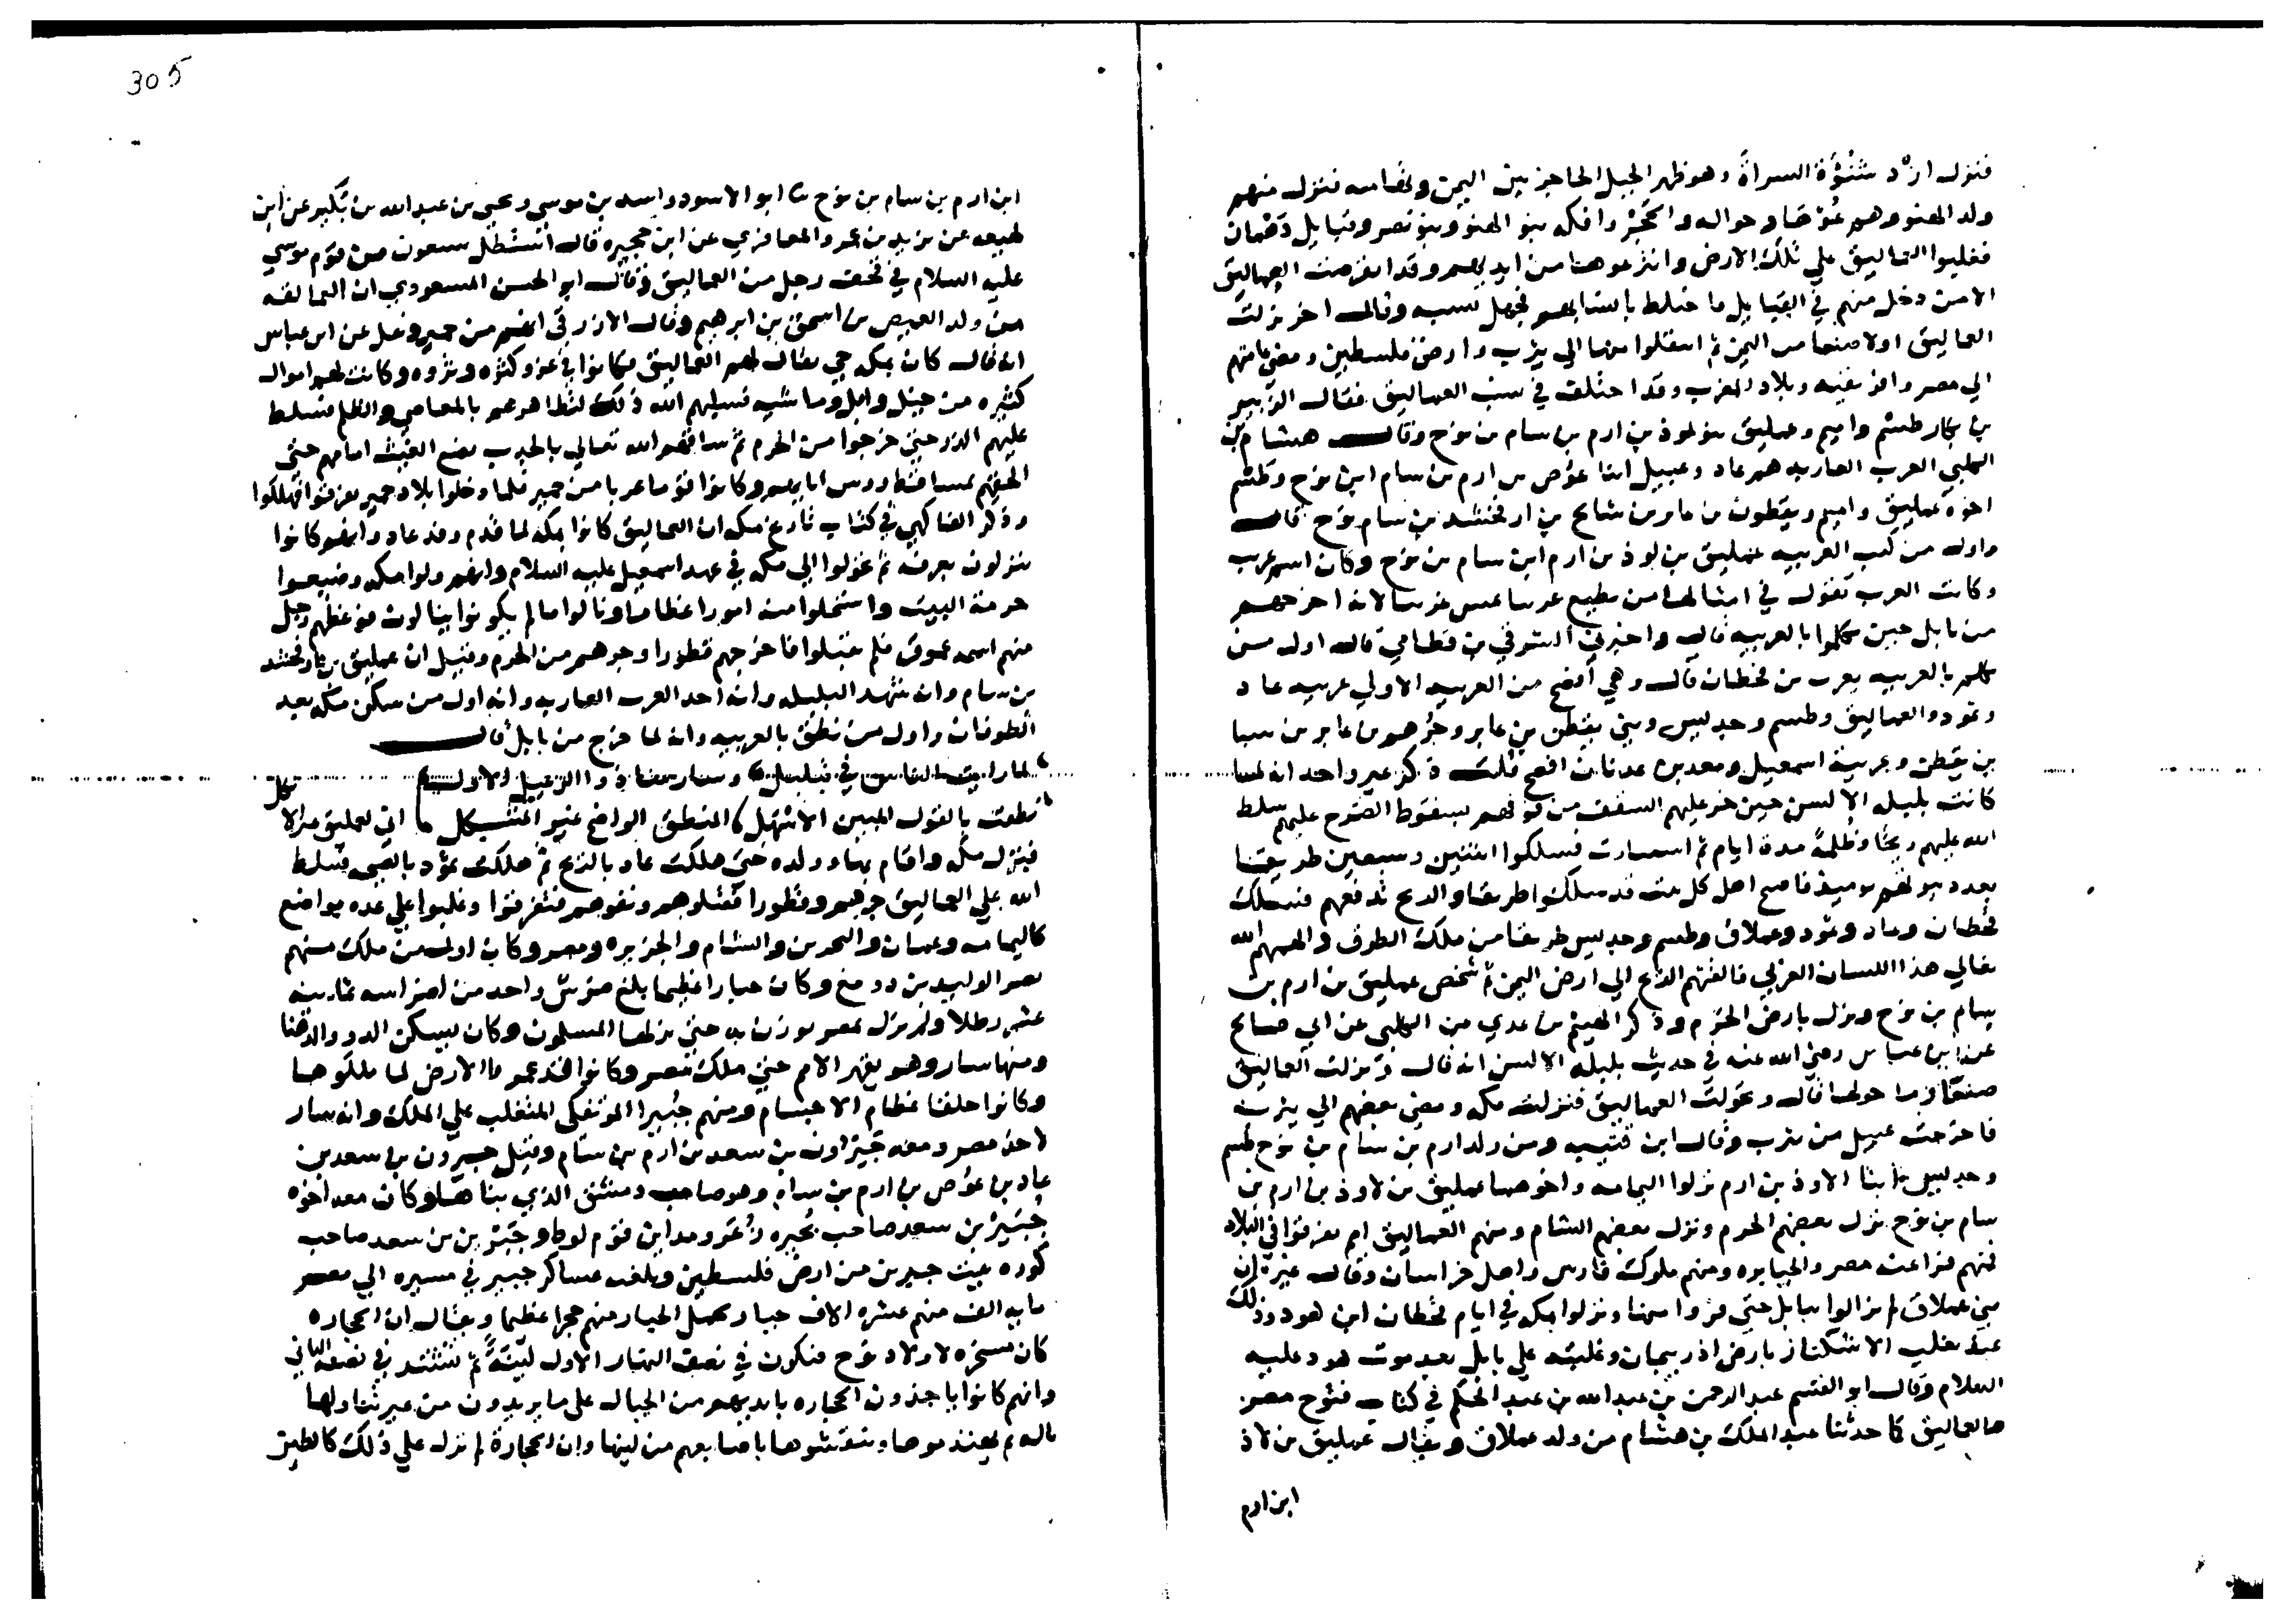 فنزلت ازد شنؤة السراة وهو ظهر الجبل الحاجز بين اليمن وتهامه فنزل منهم
ولد الهنو وهم عوصا وحواله والحجر وافكه بنو الهنو وبنو نصر وقبايل دهمان
فغلبوا العماليق علي تلك الارض وانتزعوها من ايديهم وقد انقرضت العماليق
الا من دخل منهم في القبايل ما ختلط بانسابهم فجهل نسبه وقال اخر نزلت
العماليق اولا صنعا من اليمن ثم انتقلوا منها الي يثرب وارض فلسطين ومضي منهم
الي مصر وافريقيه وبلاد المغرب وقد اختلف في نسب العماليق فقال الزبير
بن بكار طسم واميم وعمليق بنو لوذ بن ارم بن سام بن نوح وقال هشام بن
الكلبي العرب العاربه هم عاد وعبيل ابنا عوص بن ارم بن سام ابن نوح وطسم
اخوة عمليق واميم ويقطون بن عابر بن شالح بن ارفخشد بن سام بن نوح قال
واول من كتب العربيه عمليق بن لوذ بن ارم ابن سام بن نوح وكان اسمه عريب
وكانت العرب تقول في امثالها من يطيع عريبا يمس غريبا لانه اخرجهم
من بابل حين تكلموا بالعربيه قال واخبرني الشرقي بن قطامي قال اول من
تكلم بالعربيه يعرب بن قحطان قال وهي افصح من العربيه الاولي عربيه عاد
وثمود والعماليق وطسم وجديس وبني يقطن بن عابر وجرهم بن عابر بن سبا
بن يقطن وعربية اسمعيل ومعد بن عدنان افصح قلت ذكر غير واحد انه لما
كانت بلبله الالسن حين خر عليهم السقف من فوقهم بسقوط الصرح عليهم سلط
الله عليهم ريحا وظلمة مدة ايام ثم اسفرت فسلكوا اثنين وسبعين طريقا
بعدد بيوتهم يوميذ فاصبح اهل كل بيت قد سلكوا طريقا والريح تدفعهم فسلك
قحطان وعاد وثمود وعملاق وطسم وجديس طريقا من تلك الطرق والهمهم الله
تعالي هذا اللسان العربي فالقتهم الريح الي ارض اليمن ثم شخص عمليق بن ارم بن
سام بن نوح ونزل بارض الحرم وذكر الهيثم بن عدي عن الكلبي عن ابي صالح
عن ابن عباس رضي الله عنه في حديث بلبله الالسن انه قال ونزلت العماليق
صنعا وما حولها قال وتحولت العماليق فنزلت مكه ومضي بعضهم الي يثرب
فاخرجت عبيل من يثرب وقال ابن قتيبه ومن ولد ارم بن سام بن نوح طسم
وجديس ابنا لاوذ بن ارم نزلوا اليمامه واخوهما عمليق بن لاوذ بن ارم بن
سام بن نوح نزل بعضهم الحرم ونزل بعضهم الشام ومنهم العماليق امم تفرقوا في البلاد
فمنهم فراعنه مصر والجبابره ومنهم ملوك فارس واهل خراسان وقال غيره ان
بني عملاق لم يزالوا ببابل حتي فروا منها ونزلوا بمكه في ايام قحطان ابن هود وذلك
عند تغلب الاشكناز بارض اذربيجان وغلبته علي بابل بعد موت هود عليه
السلام وقال ابو القسم عبد الرحمن بن عبد الله بن عبد الحكم في كتاب فتوح مصر
والعماليق كما حدثنا عبد الملك بن هشام من ولد عملاق ويقال عمليق بن لاذ
ابن ارم
305
ابن ارم بن سام بن نوح ثنا ابو الاسود واسد بن موسي ويحيي بن عبد الله بن بكير عن ابن
لهيعه عن يزيد بن عمرو المعافري عن ابن حجيره قال استظل سبعون من قوم موسي
عليه السلام في قحف رجل من العماليق وقال ابو الحسن المسعودي ان العمالقه
من ولد العيص بن اسحق بن ابرهيم وقال الازرقي انهم من حمير ونقل عن ابن عباس
انه قال كان بمكه حي يقال لهم العماليق فكانوا في عز وكثره وثروه وكانت لهم اموال
كثيره من خيل وابل وماشيه فسلبهم الله ذلك لتظاهرهم بالمعاصي والظلم فسلط
عليهم الذر حتي خرجوا من الحرم ثم ساقهم الله تعالي بالجدب يضع الغيث امامهم حتي
الحقهم بمساقط روس ابايهم وكانوا قوما عربا من حمير فلما دخلوا بلاد حمير تفرقوا فهلكوا
وذكر الفاكهي في كتاب تاريخ مكه ان العماليق كانوا بمكه لما قدم وفد عاد وانهم كانوا
ينزلون بعرفه ثم تحولوا الي مكه في عهد اسمعيل عليه السلام وانهم ولوا مكه وضيعوا
حرمة البيت واستحلوا منه امورا عظاما ونالوا ما لم يكونوا ينالون فوعظهم رجل
منهم اسمه عموق فلم يقبلوا فاخرجهم قطورا وجرهم من الحرم وقيل ان عمليق بن ارفخشد
بن سام وانه شهد البلبله وانه احد العرب العاربه وانه اول من سكن مكه بعد
الطوفان واول من نطق بالعربيه وانه لما خرج من بابل قال
لما رايت الناس في تبلبل وسار منا ذو الرعيل الاول
نطقت بالقول المبين الاسهل المنطق الواضح غير المشكل اني لعمليق
فنزل مكه واقام بها وولده حتي هلكت عاد بالريح ثم هلكت ثمود بالصيحه فسلط
الله علي العماليق جرهم وقطورا فقتلوهم ونفوهم فتفرقوا وغلبوا علي عده مواضع
كاليمامه وعمان والبحرين والشام والجزيره ومصر وكان اول من ملك منهم
مصر الوليد بن دومغ وكان جبارا عظيما بلغ ضرس واحد من اضراسه ثمانيه
عشر رطلا ولم يزل بمصر يوزن به حتي نزلها المسلمون وكان يسكن الدو والدهنا
ومنها سار وهو يقهر الامم حتي ملك مصر وكانوا قد عمروا الارض لما ملكوها
وكانوا خلقا عظام الاجسام ومنهم جبير المؤتفكي المتغلب علي الملك وانه سار
لاخذ مصر ومعه جيرون بن سعد بن ارم بن سام وقيل جيرون بن سعد بن
عاد بن عوص بن ارم بن سام وهو صاحب دمشق الذي بناها وكان معه اخوه
جبير بن سعد صاحب بحيره زغر ومداين قوم لوط وجبرين بن سعد صاحب
كوره بيت جبرين من ارض فلسطين وبلغت عساكر جبير في مسيره الي مصر
مايه الف منهم عشره الاف جبار يحمل الجبار منهم حجرا عظيما ويقال ان الحجاره
كان مسخره لاولاد نوح فتكون في نصف النهار الاول لينة ثم تشتد في نصفه الثاني
وانهم كانوا ياخذون الحجاره بايديهم من الجبال علي ما يريدون من غير تناولها
باله ثم يهندموها وينقشوها باصابعهم من لينها وان الحجارة لم تزل علي ذلك كالطين